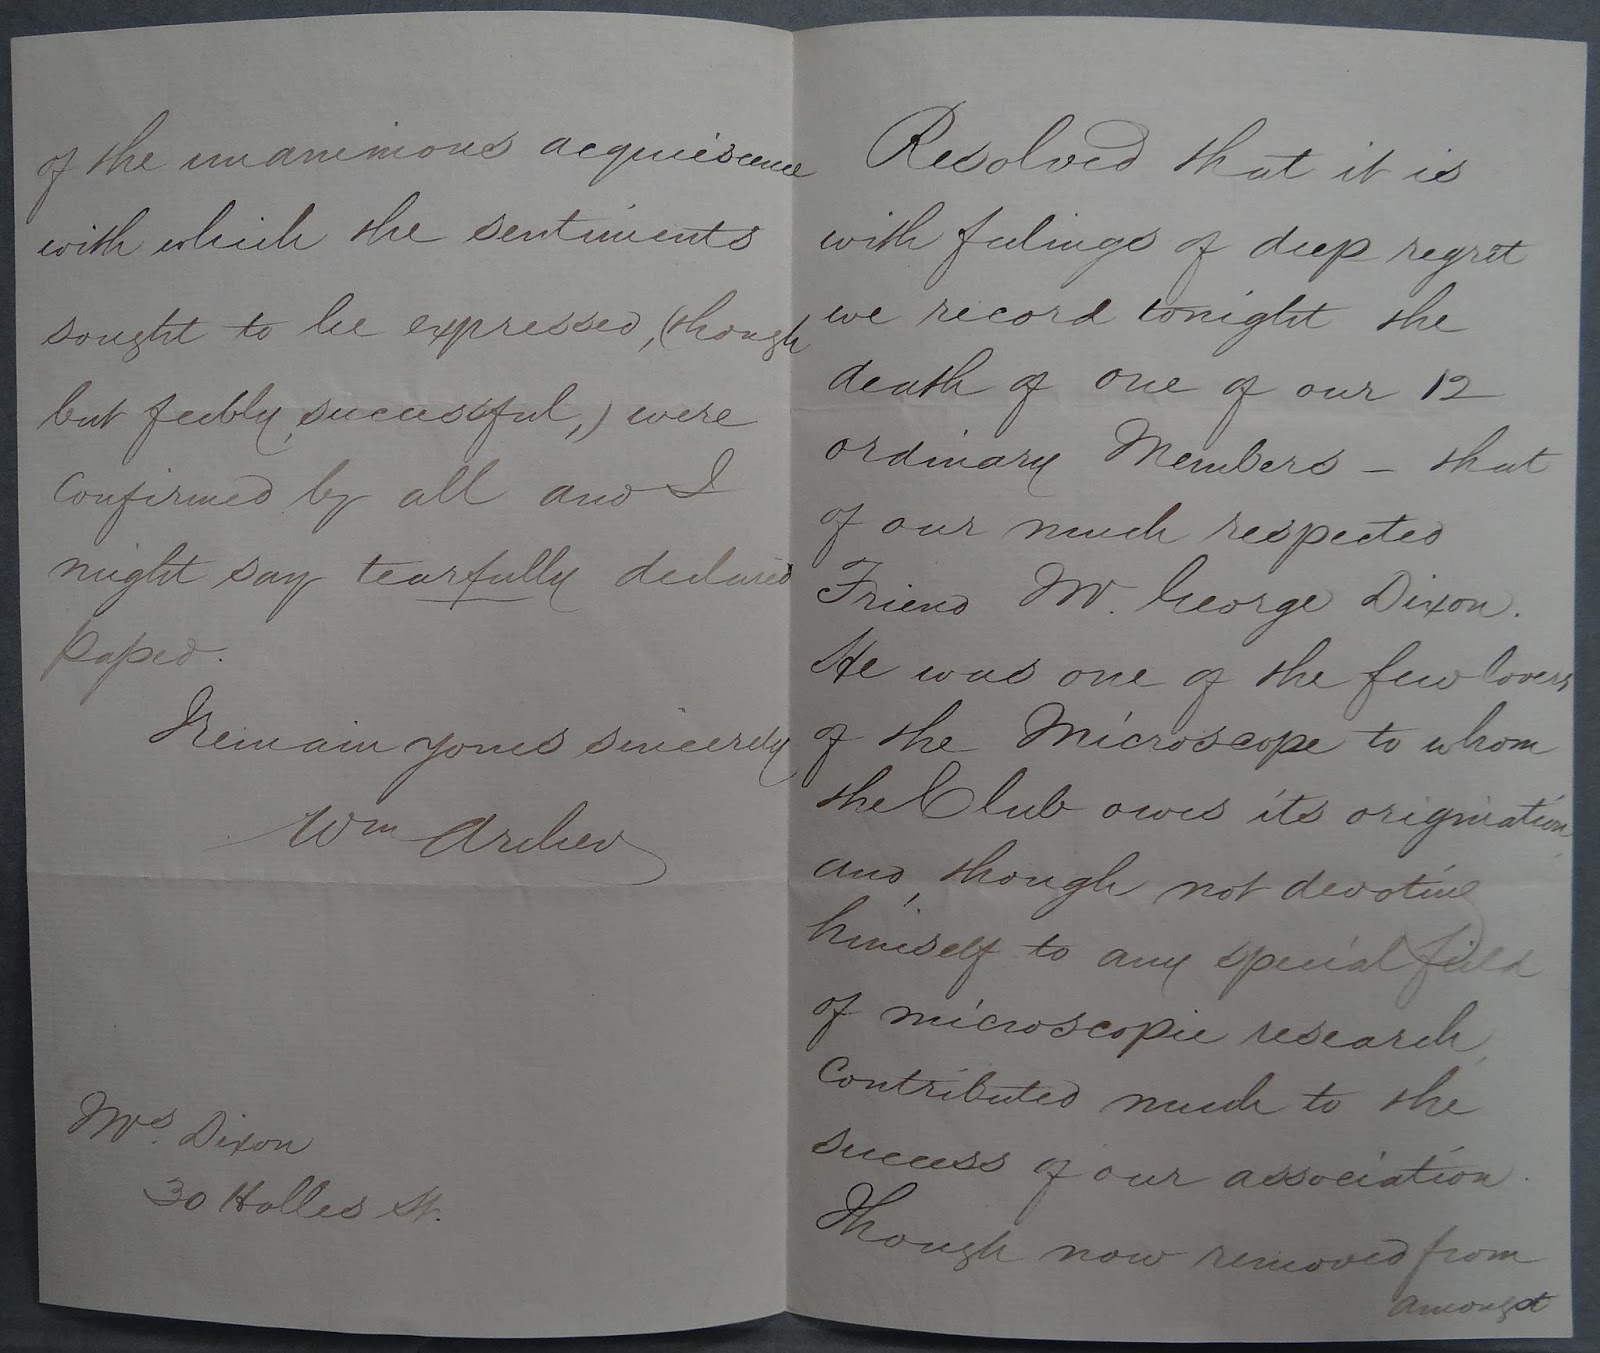 of the unanimous acquiescence
with which the sentiments
sought to be expressed, (though
but feebly successful,) were
confirmed by all and I
might say tearfully declared
passed.
I remain yours sincerely
Wm Archer
Mrs. Dixon
30 Holles St.
Resolved that it is
with feelings of deep regret
we record tonight the
death of one of our 12
ordinary Members – that
of our much respected
Friend Mr. George Dixon.
He was one of the few lovers
of the Microscope to whom
the Club owes its origination
and, though not devoting
himself to any special field
of microscopic research,
contributed much to the
success of our association.
Though now removed from
amongst